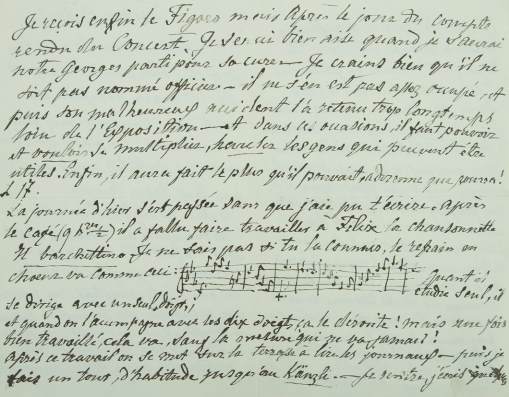 Je reçois enfin le Figaro mais après le jour du compte
rendu du Concert. Je serai bien aise quand je saurai
notre Georges parti pour sa cure. Je crains bien qu'il ne
soit pas nommé officier — il ne s'en est pas assez occupé, et
puis son malheureux accident l'a retenu trop longtemps
loin de l'Exposition — et dans ces occasions, il faut pouvoir
et vouloir se multiplier, les gens qui peuvent être
utiles. Enfin, il aura fait le plus qu'il pouvait,
L 17
La journée d'hier s'est passée sans que j'aie pu t'écrire. Après
le café (9 h) il a fallu faire travailler à Félix la chansonnette
Il barchettino. Je ne sais pas si tu la connais, le refrain en
choeur va comme ceci: Quand il
étudie seul, il
se dirige avec un seul doigt,
et quand on l'acompagne avec les dix doigts, ça le déroute! mais une fois
bien travaillé, cela va, sauf la mesure qui ne va jamais!
Après ce travail on se met sur la terrasse à lire les journaux — puis je
fais un tour, d'habitude jusqu'au Känzli. — Je rentre, j'écris quelques